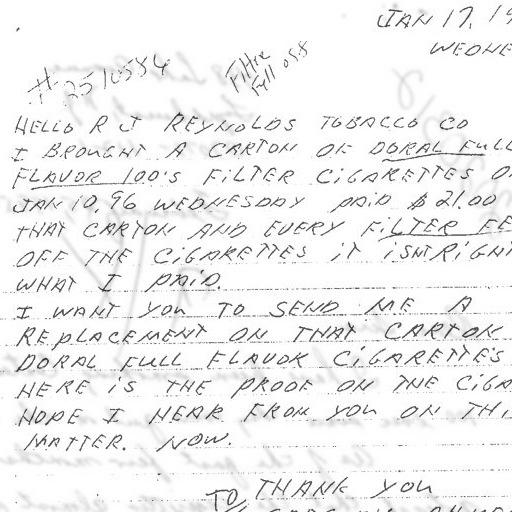 JAN 17, 19
WEDNE
# 2510584
Filter
Fell off
HELLO R J REYNOLDS TOBACCO CO
I BROUGHT A CARTON OF DORAL FULL
FLAVOR 100'S FILTER CIGARETTES O
JAN 10, 96 WEDNESDAY PAID $21.00
THAT CARTON AND EVERY FILTER FE
OFF THE CIGARETTES IT ISNT RIGHT
WHAT I PAID.
I WANT YOU TO SEND ME A
REPLACEMENT ON THAT CARTON
DORAL FULL FLAVOR CIGARETTE'S
HERE IS THE PROOF ON THE CIGA
HOPE I HEAR FROM YOU ON THI
MATTER. NOW.
TO THANK YOU